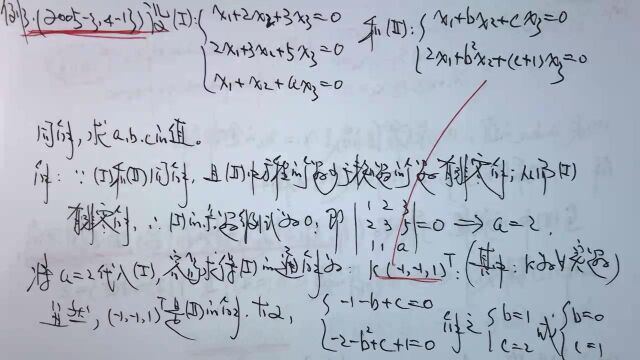 例3.(2005-3,4-13) 设(I): { x₁+2x₂+3x₃=0
2x₁+3x₂+5x₃=0
x₁+x₂+ax₃=0
和(II): { x₁+bx₂+cx₃=0
2x₁+b²x₂+(c+1)x₃=0
同解, 求a.b.c的值。
解: ∵ (I)和(II)同解, 且(II)的方程的个数小于未知数的个数 有非零解; 从而(I)
有非零解, ∴ (I)的系数行列式为0, 即 | 1 2 3
2 3 5
1 1 a | =0 ⟹ a=2,
将 a=2代入(I), 容易求得(I)的通解为: k(-1,-1,1)ᵀ: (其中: k为∀实数)
显然, (-1,-1,1)ᵀ是(II)的解. 于是, { -1-b+c=0
-2-b²+c+1=0
解之 { b=1
c=2 或 { b=0
c=1